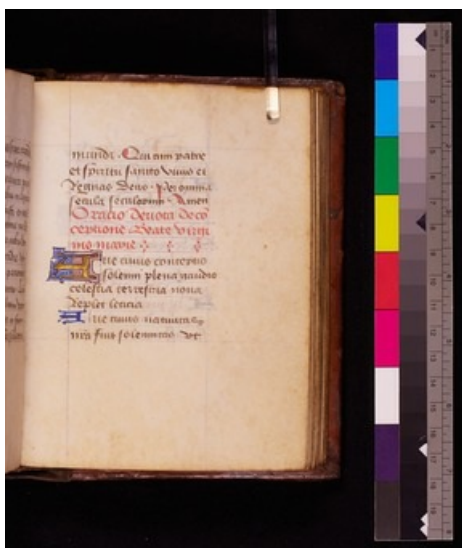 mundi · Qui cum patre
et spiritu sancto viuis et
Regnas Deus · Per omnia
secula seculorum · Amen
Oratio deuota de co͂
ceptione Beate virgi
nis marie
Aue cuius conceptio
solemni plena gaudio
celestia terrestria noua
Replet leticia
Aue cuius natiuitas
nr̃a fuit solennitas vt